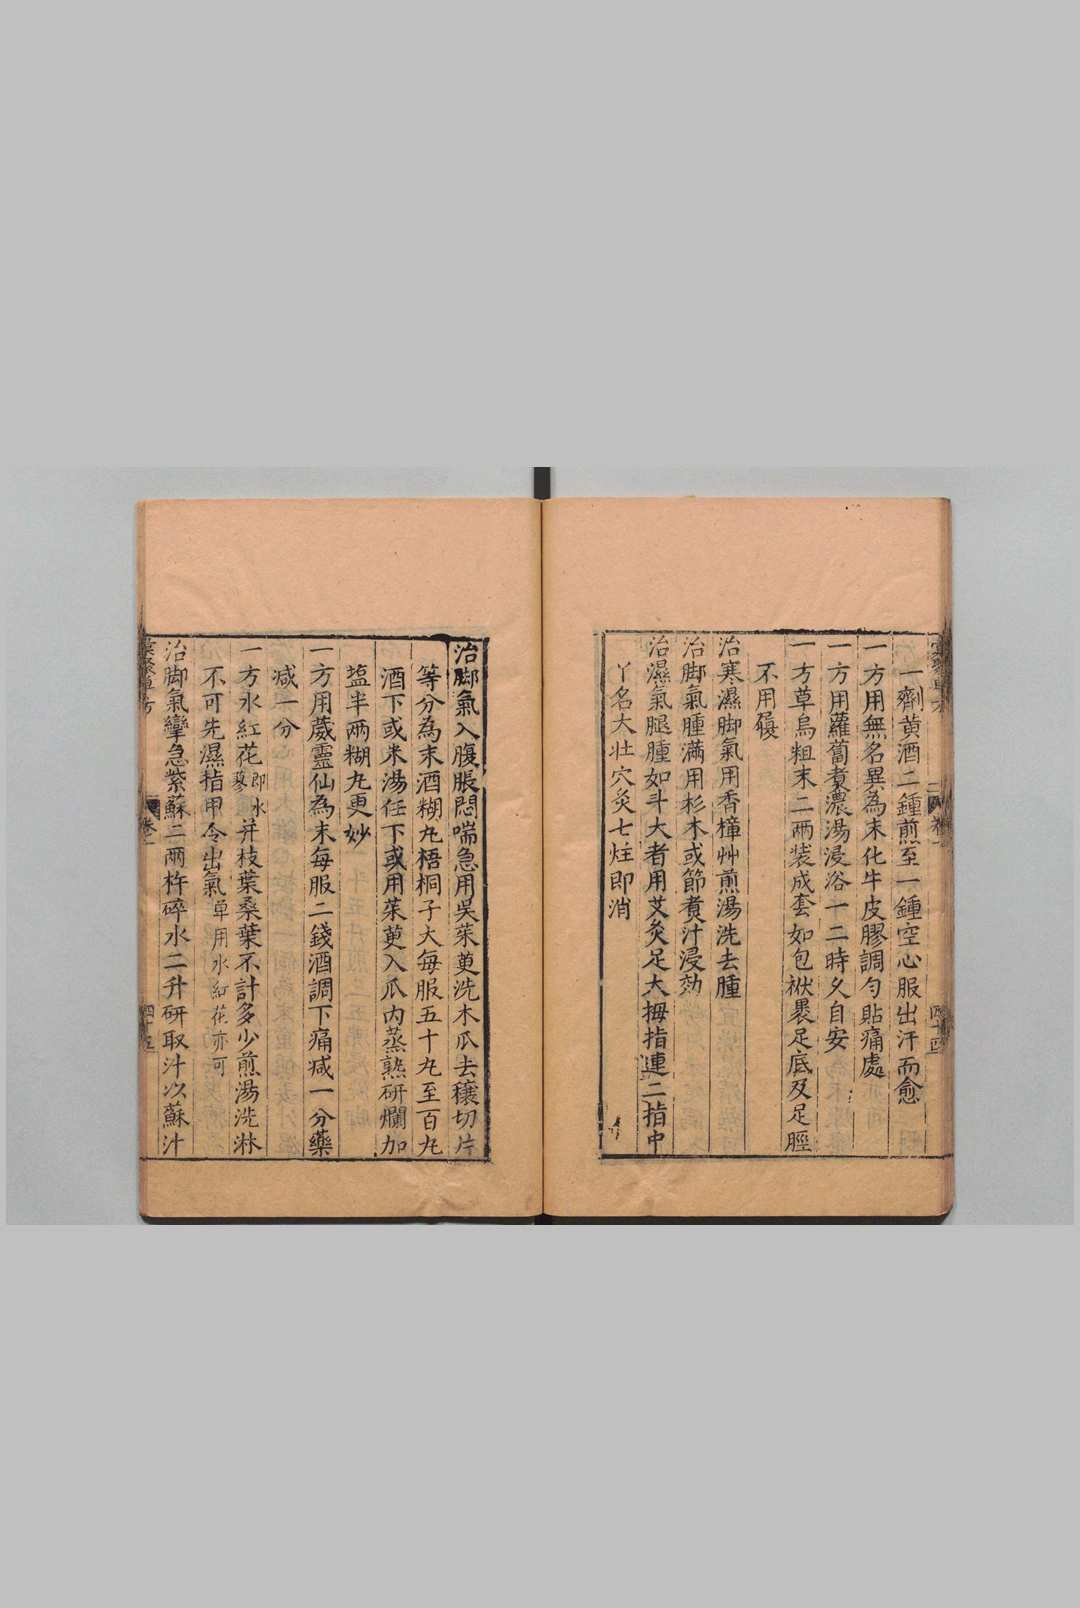 一劑黄酒二鍾煎至一鍾空心服出汗而愈
一方用無名異為末化牛皮膠調勻貼痛處
一方用蘿蔔煮濃湯浸浴一二時久自安
一方草烏粗末二兩裝成套如包袱裹足底及足脛
不用𮞏
治寒濕脚氣用香樟艸煎湯洗去腫
治脚氣腫滿用杉木或節煮汁浸効
治濕氣腿腫如斗大者用艾灸足大拇指連二指中
丫名大壯穴灸七炷即消
治脚氣入腹脹悶喘急用吳茱萸洗木瓜去穰切片
等分為末酒糊丸梧桐子大每服五十丸至百丸
酒下或米湯任下或用茱萸入瓜內蒸熟研爛加
塩半兩糊丸更妙
一方用葳靈仙為末每服二錢酒調下痛减一分藥
减一分
一方水紅花即水蓼并枝葉桑葉不計多少煎湯洗淋
不可先濕指甲令出氣单用水紅花亦可
治脚氣攣急紫蘇二兩杵碎水二升研取汁以蘇汁
卷一
四十五